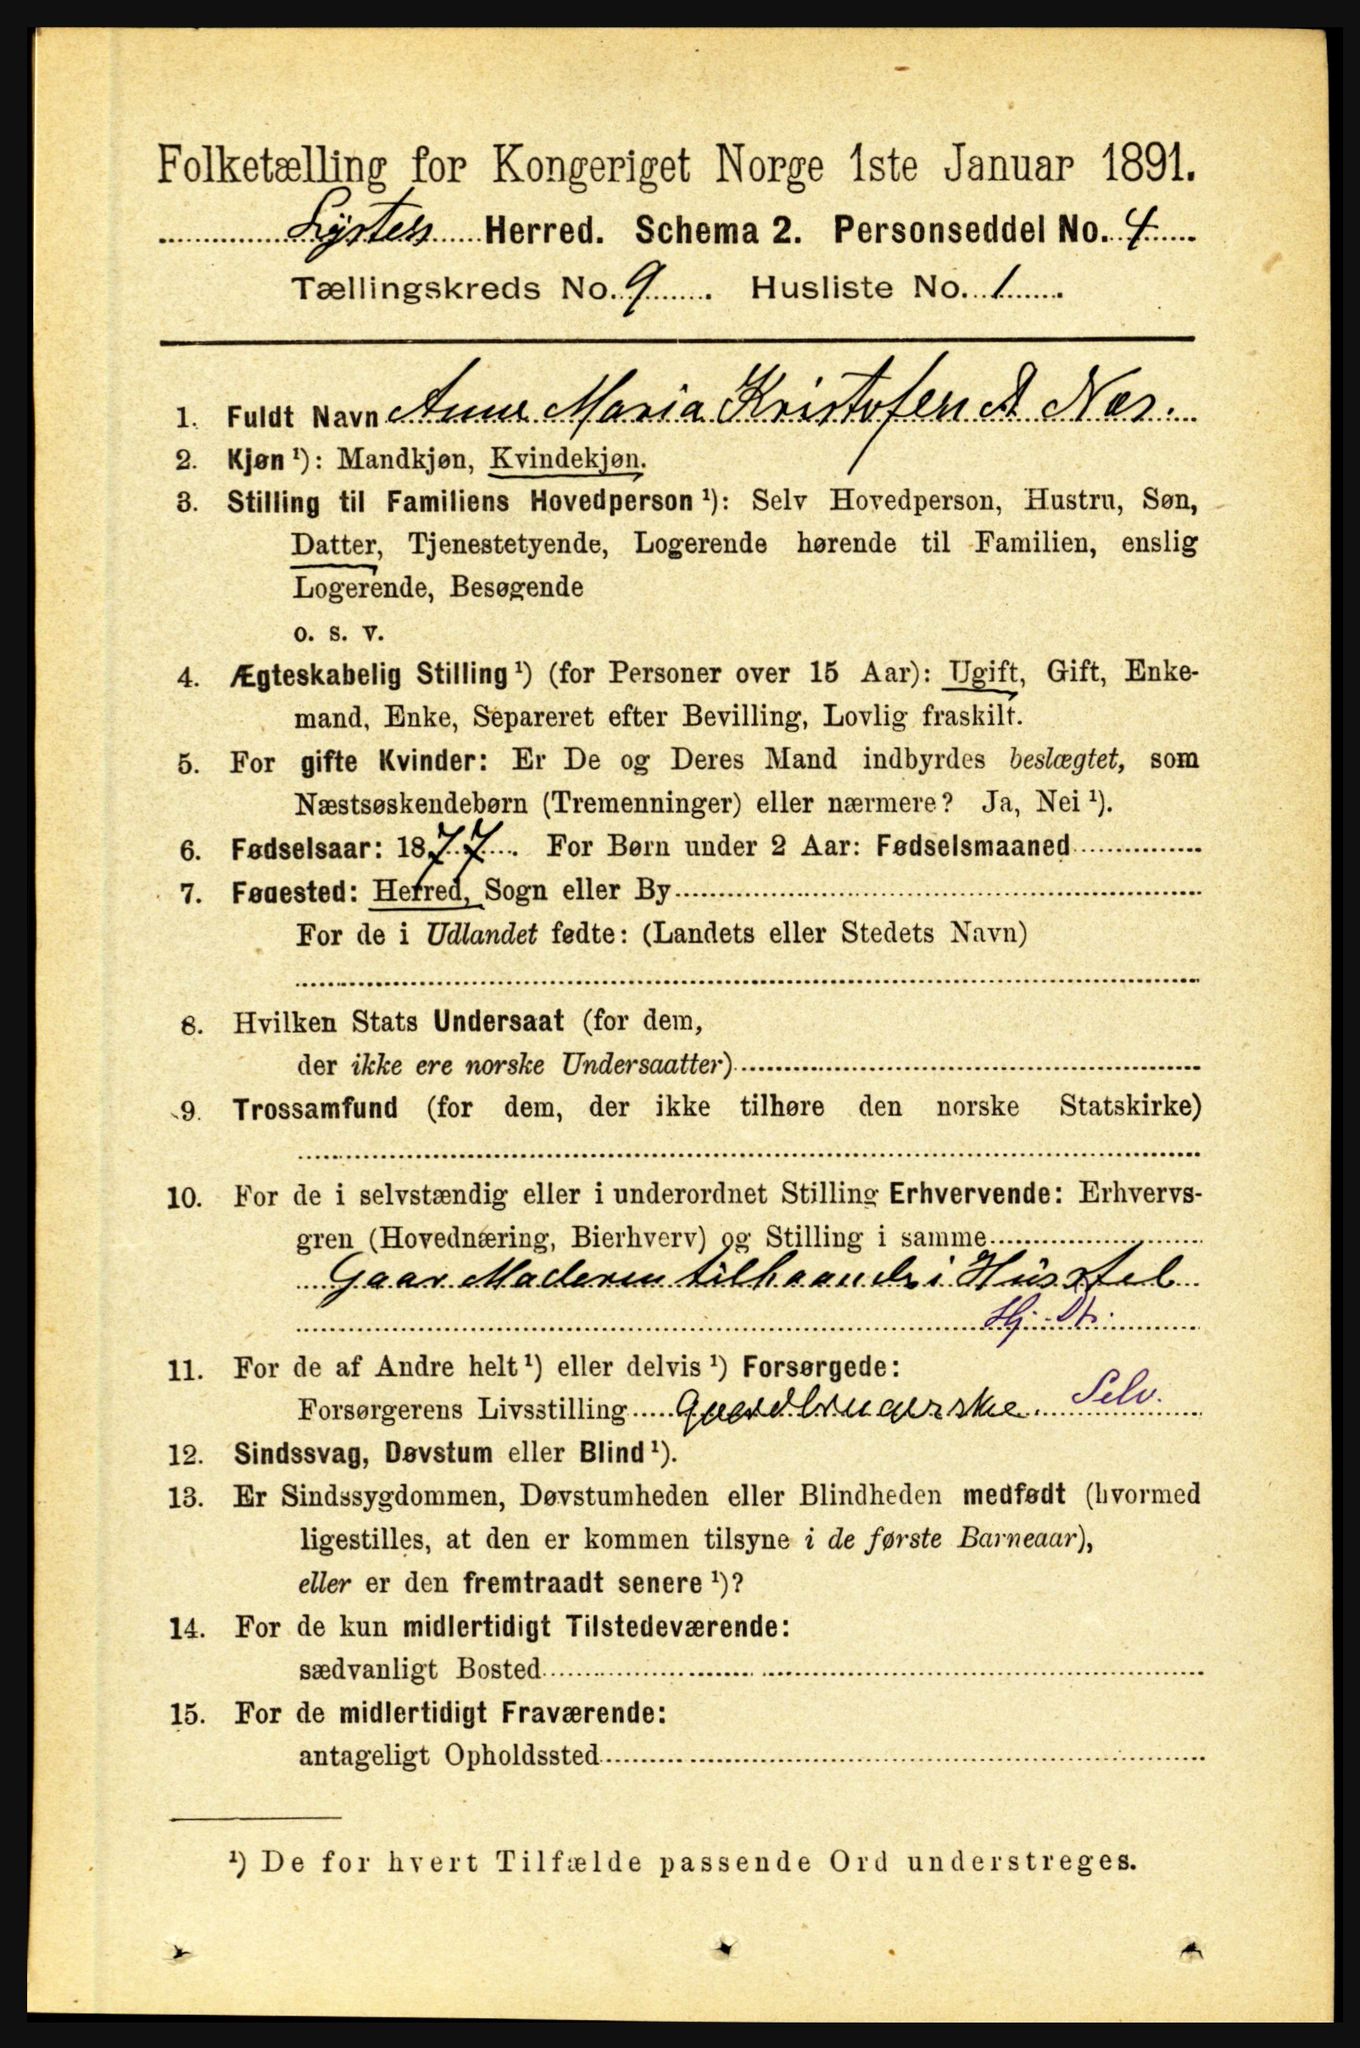 Folketælling for Kongeriget Norge 1ste Januar 1891.
Lyster Herred. Schema 2. Personseddel No. 4
Tællingskreds No. 9. Husliste No. 1.
1. Fuldt Navn Anne Maria Kristofersd. Næs.
2. Kjøn ¹): Mandkjøn, Kvindekjøn.
3. Stilling til Familiens Hovedperson ¹): Selv Hovedperson, Hustru, Søn,
Datter, Tjenestetyende, Logerende hørende til Familien, enslig
Logerende, Besøgende
o. s. v.
4. Ægteskabelig Stilling ¹) (for Personer over 15 Aar): Ugift, Gift, Enke-
mand, Enke, Separeret efter Bevilling, Lovlig fraskilt.
5. For gifte Kvinder: Er De og Deres Mand indbyrdes beslægtet, som
Næstsøskendebørn (Tremenninger) eller nærmere? Ja, Nei ¹).
6. Fødselsaar: 1877. For Børn under 2 Aar: Fødselsmaaned
7. Fødested: Herred, Sogn eller By
For de i Udlandet fødte: (Landets eller Stedets Navn)
8. Hvilken Stats Undersaat (for dem,
der ikke ere norske Undersaatter)
9. Trossamfund (for dem, der ikke tilhøre den norske Statskirke)
10. For de i selvstændig eller i underordnet Stilling Erhvervende: Erhvervs-
gren (Hovednæring, Bierhverv) og Stilling i samme
Gaar Moderen tilhaande i Husstel
Hj. Dt.
11. For de af Andre helt ¹) eller delvis ¹) Forsørgede:
Forsørgerens Livsstilling Gaardbrugerske. Selv.
12. Sindssvag, Døvstum eller Blind ¹).
13. Er Sindssygdommen, Døvstumheden eller Blindheden medfødt (hvormed
ligestilles, at den er kommen tilsyne i de første Barneaar),
eller er den fremtraadt senere ¹)?
14. For de kun midlertidigt Tilstedeværende:
sædvanligt Bosted
15. For de midlertidigt Fraværende:
antageligt Opholdssted
¹) De for hvert Tilfælde passende Ord understreges.